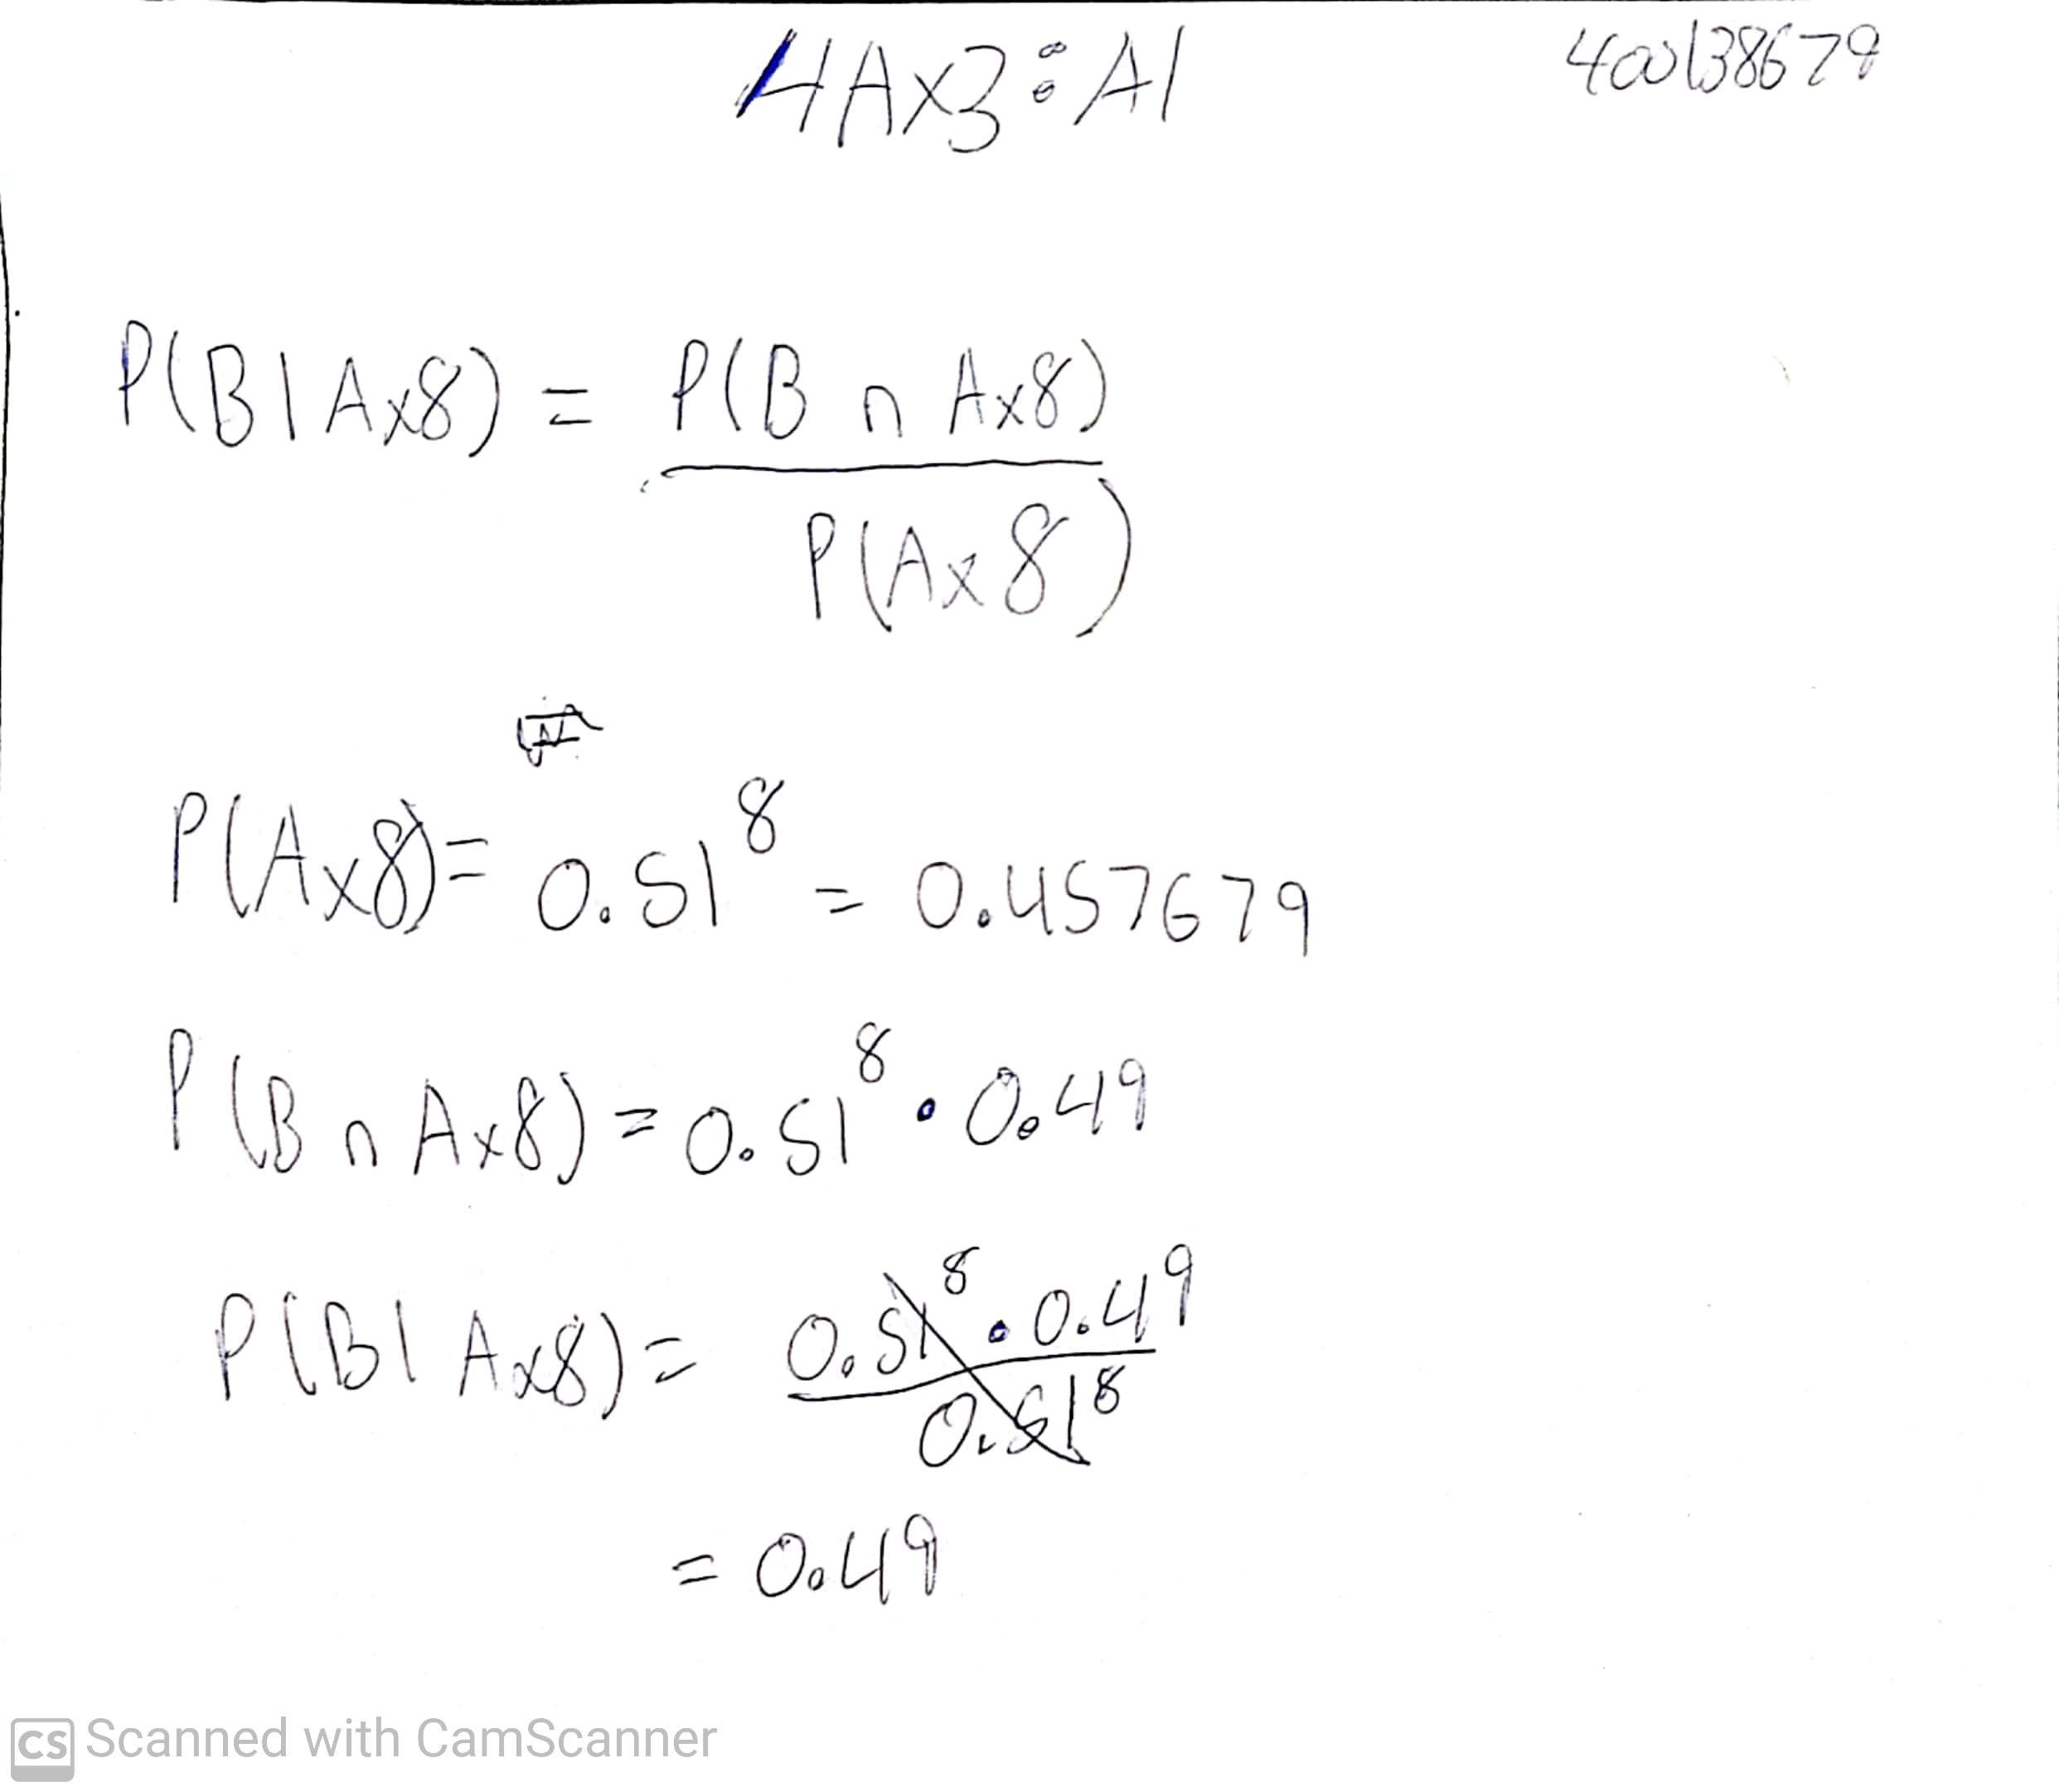 4AX3: A1
400138679
P(B | Ax8) = P(B ∩ Ax8)
P(Ax8)
P(Ax8) = 0.51^8 = 0.457679
P(B ∩ Ax8) = 0.51^8 • 0.49
P(B | Ax8) = 0.51^8 • 0.49
0.51^8
= 0.49
CS Scanned with CamScanner